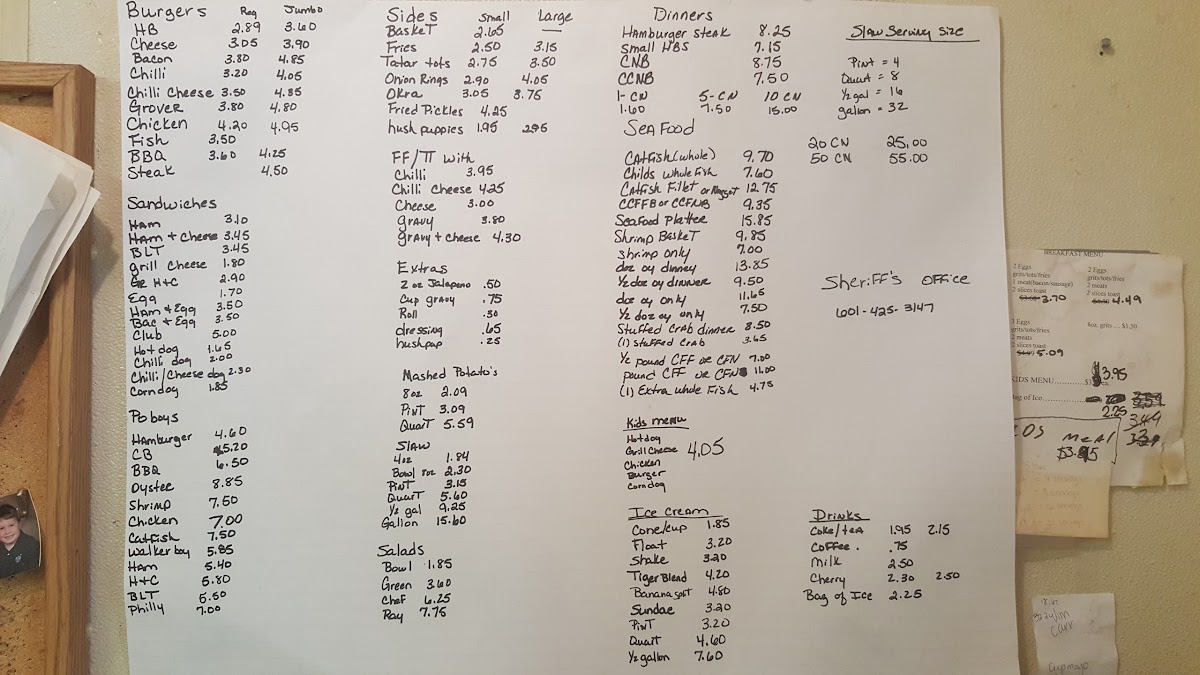 Burgers Reg Jumbo
HB 2.89 3.60
Cheese 3.05 3.90
Bacon 3.80 4.85
Chilli 3.20 4.05
Chilli Cheese 3.50 4.85
Grover 3.80 4.80
Chicken 4.20 4.95
Fish 3.50
BBQ 3.60 4.25
Steak 4.50
Sandwiches
Ham 3.10
Ham + Cheese 3.45
BLT 3.45
grill Cheese 1.80
Gr H+C 2.90
Egg 1.70
Ham & Egg 3.50
Bac + Egg 3.50
Club 5.00
Hot dog 1.65
Chilli dog 2.00
Chilli/Cheese dog 2.30
Corndog 1.85
Po boys
Hamburger 4.60
CB 5.20
BBQ 6.50
Oyster 8.85
Shrimp 7.50
Chicken 7.00
Catfish 7.50
Walker boy 5.85
Ham 5.40
H+C 5.80
BLT 5.50
Philly 7.00
Sides Small Large
Basket 2.65 —
Fries 2.50 3.15
Tatar tots 2.75 3.50
Onion Rings 2.90 4.05
Okra 3.05 3.75
Fried Pickles 4.25
hush puppies 1.95 2.95
FF/TT with
Chilli 3.95
Chilli Cheese 4.25
Cheese 3.00
gravy 3.80
gravy + cheese 4.30
Extras
2 oz Jalapeno .50
Cup gravy .75
Roll .30
dressing .65
hushpup .25
Mashed Potato's
8oz 2.09
Pint 3.09
Quait 5.59
Slaw
4oz 1.84
Bowl 8oz 2.30
Pint 3.15
Quart 5.60
½ gal 9.25
Gallon 15.60
Salads
Bowl 1.85
Green 3.60
Chef 6.25
Ray 7.75
Dinners
Hamburger steak 8.25
Small HBS 7.15
CNB 8.75
CCNB 7.50
1-CN 5-CN 10 CN
1.60 7.50 15.00
Sea Food
Catfish (whole) 9.70
Childs whole Fish 7.60
Catfish Fillet or Nugget 12.75
CCFFB or CCFNB 9.35
Seafood Platter 15.85
Shrimp Basket 9.85
Shrimp only 7.00
doz oy dinney 13.85
½ doz oy dinner 9.50
doz oy only 11.65
½ doz oy only 7.50
Stuffed Crab dinner 8.50
(1) stuffed Crab 3.65
½ pound CFF or CFN 7.00
pound CFF or CFN 11.00
(1) Extra whole Fish 4.75
Kids menu
Hotdog
Grill Cheese 4.05
Chicken
Burger
Corndog
Ice Cream
Cone/cup 1.85
Float 3.20
Shake 3.20
Tiger Blend 4.20
Banana splt 4.80
Sundae 3.20
Pint 3.20
Quart 4.60
½ gallon 7.60
Slaw Serving Size
Pint = 4
Quart = 8
½ gal = 16
gallon = 32
20 CN 25.00
50 CN 55.00
Sheriff's Office
601-425-3147
Drinks
Coke/tea 1.95 2.15
Coffee . .75
Milk 2.50
Cherry 2.30 2.50
Bag of Ice 2.25
BREAKFAST MENU
2 Eggs
grits/tots/fries
1 meat(bacon/sausage)
2 slices toast
3.70
2 Eggs
grits/tots/fries
2 meats
2 slices toast
4.49
Eggs
grits/tots/fries
2 meats
2 slices toast
5.09
8oz. grits ... $1.30
KIDS MENU
$3.95
Bag of Ice
2.25
Meal
Carr
Cupmayo